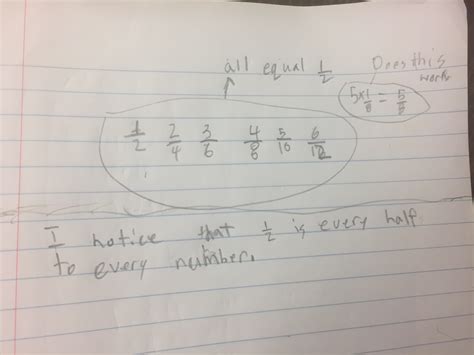 all equal 1/2
Does this
work
5×1/8 = 5/8
1/2 2/4 3/6 4/8 5/10 6/12
I notice that 1/2 is every half
to every number.